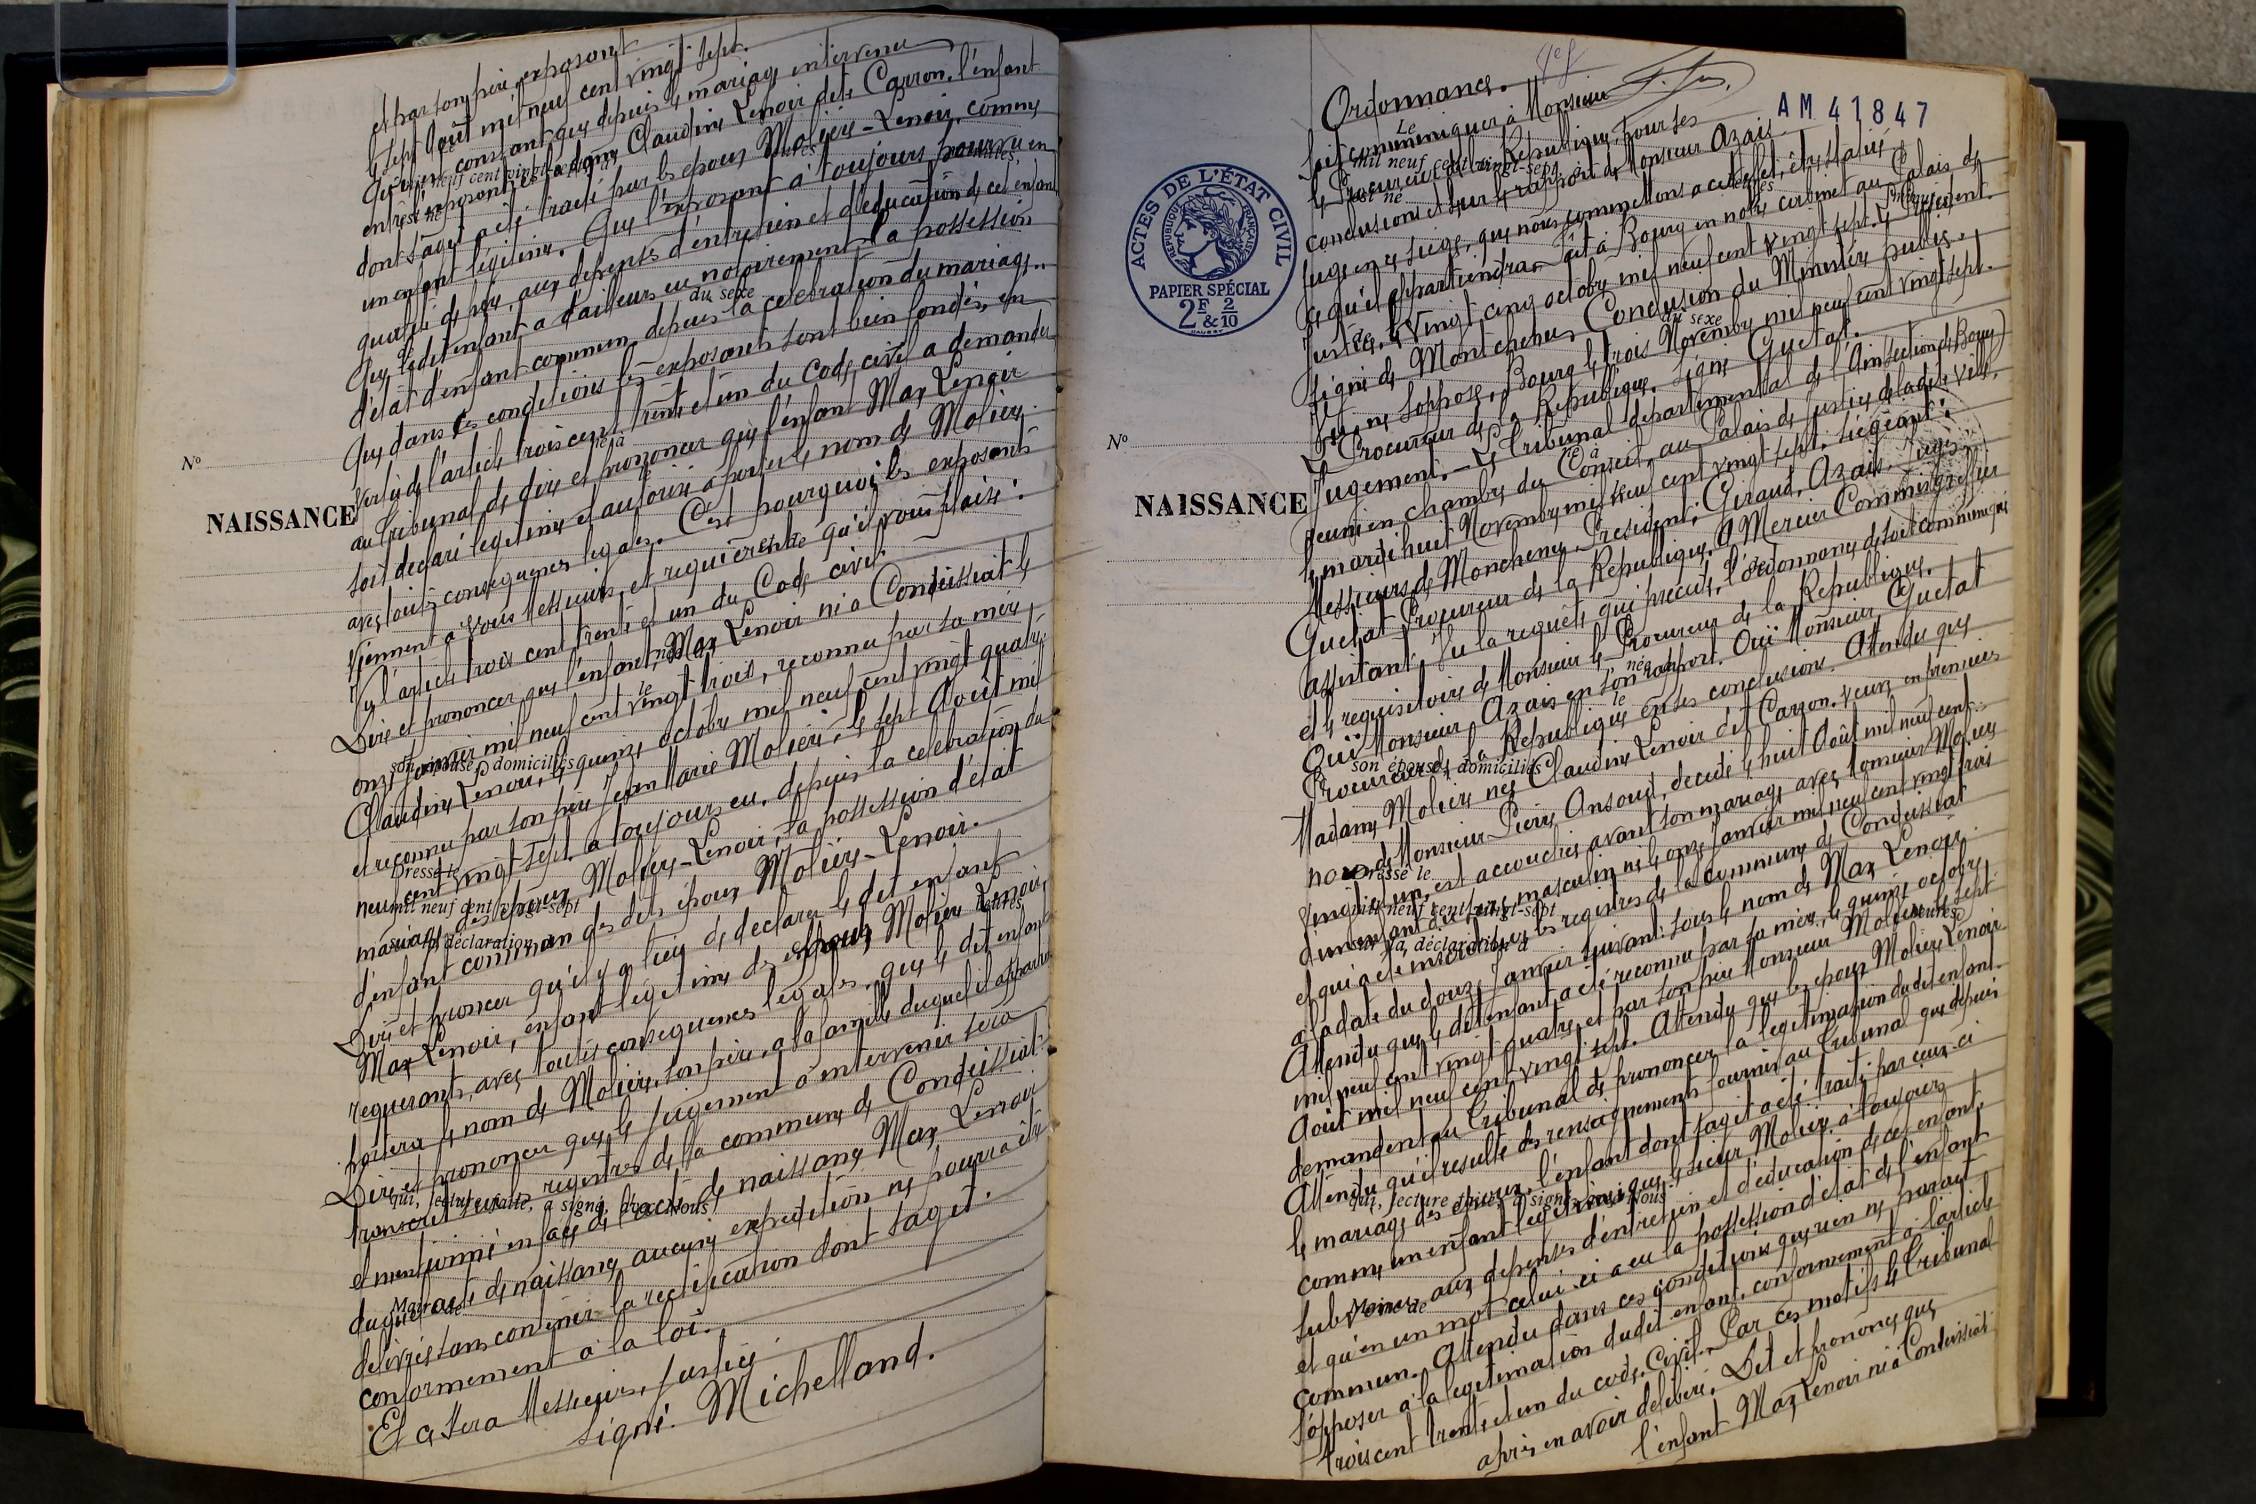 et par son père, exposant
le sept Août mil neuf cent vingt sept.
Qu'il est constant que depuis le mariage intervenu
entre l'exposant et la dame Claudine Lenoir dite Carron, l'enfant
dont s'agit a été traité par les époux Molière-Lenoir, comme
un enfant légitime. Que l'exposant a toujours pourvu en
qualité de père, aux dépenses d'entretien et d'éducation de cet enfant
Que ledit enfant a d'ailleurs eu notoirement la possession
d'état d'enfant commun depuis la célébration du mariage.
Que dans ces conditions les exposants sont bien fondés, en
vertu de l'article trois cent trente et un du Code civil a demander
au Tribunal de dire et prononcer que l'enfant Max Lenoir
soit déclaré légitime et autorisé à porter le nom de Molière
avec toutes conséquences légales. C'est pourquoi les exposants
viennent à vous Messieurs et requièrent qu'il vous plaise :
Vu l'article trois cent trente et un du Code civil
Dire et prononcer que l'enfant Max Lenoir né à Condeissiat le
onze janvier mil neuf cent vingt trois, reconnu par sa mère,
Claudine Lenoir, le quinze octobre mil neuf cent vingt quatre
et reconnu par son père Jean Marie Molière, le sept Août mil
neuf cent vingt sept, a toujours eu, depuis la célébration du
mariage des époux Molière-Lenoir, la possession d'état
d'enfant commun des dits époux Molière-Lenoir.
Dire et prononcer qu'il y a lieu de déclarer le dit enfant
Max Lenoir, enfant légitime des époux Molière Lenoir,
requérants, avec toutes conséquences légales, que le dit enfant
portera le nom de Molière, son père, a la famille duquel il appartient
Dire et prononcer que le jugement à intervenir sera
transcrit sur les registres de la commune de Condeissiat
et mentionné en face de l'acte de naissance Max Lenoir
duquel acte de naissance aucune expédition ne pourra être
délivrée sans contenir la rectification dont s'agit.
conformément à la loi.
Et ce sera Messieurs, justice
signé. Michelland.
N°
NAISSANCE
Ordonnance.
AM 41847
Soit communiqué à Monsieur
le Procureur de la République, pour ses
conclusions et sur le rapport de Monsieur Azais
juge en ce siège, que nous commettons à cet effet, être statué
ce qu'il appartiendra. Fait à Bourg en notre cabinet au Palais de
Justice, le vingt cinq octobre mil neuf cent vingt sept. Le Président.
Signé de Montchenu. Conclusion du Ministère public.
Je ne s'oppose. Bourg le trois Novembre mil neuf cent vingt sept.
Le Procureur de la République. Signé Guetat.
Jugement. - Le Tribunal départemental de l'Ain section de Bourg)
réuni en chambre du Conseil, au Palais de justice de la dite ville,
le mardi huit Novembre mil neuf cent vingt sept. siégeant :
Messieurs de Monchenu, Président; Giraud, Azais, Juges;
Guetat Procureur de la République. A Mercier Commis greffier
assistant. Vu la requête qui précède, l'ordonnance de soit communiqué
et le réquisitoire de Monsieur le Procureur de la République.
Ouï Monsieur Azais en son rapport. Ouï Monsieur Guetat
Procureur de la République en ses conclusions. Attendu que
Madame Molière née Claudine Lenoir dit Carron, veuve en premières
noces de Monsieur Pierre Ansoud, décédé le huit Août mil neuf cent
vingt un, est accouchée avant son mariage avec Monsieur Molière
d'un enfant du sexe masculin né le onze janvier mil neuf cent vingt trois
et qui a été inscrit sur les registres de la commune de Condeissiat
à la date du douze janvier suivant: sous le nom de Max Lenoir.
Attendu que le dit enfant a été reconnu par sa mère, le quinze octobre
mil neuf cent vingt quatre et par son père Monsieur Molière le sept
Août mil neuf cent vingt sept. Attendu que les époux Molière Lenoir
demandent au Tribunal de prononcer la légitimation du dit enfant.
Attendu qu'il résulte des renseignements fournis au Tribunal que depuis
le mariage des époux, l'enfant dont s'agit a été traité par ceux-ci
comme un enfant légitime; que le sieur Molière a toujours
subvenu aux dépenses d'entretien et d'éducation de cet enfant,
et qu'en un mot celui-ci a eu la possession d'état de l'enfant
commun. Attendu dans ces conditions que rien ne parait
s'opposer à la légitimation dudit enfant, conformément à l'article
trois cent trente et un du code Civil. Par ces motifs le Tribunal
après en avoir délibéré. Dit et prononce que
l'enfant Max Lenoir né à Condeissiat
ACTES DE L'ÉTAT CIVIL
RÉPUBLIQUE FRANÇAISE
PAPIER SPÉCIAL
2F & 2/10
N°
NAISSANCE